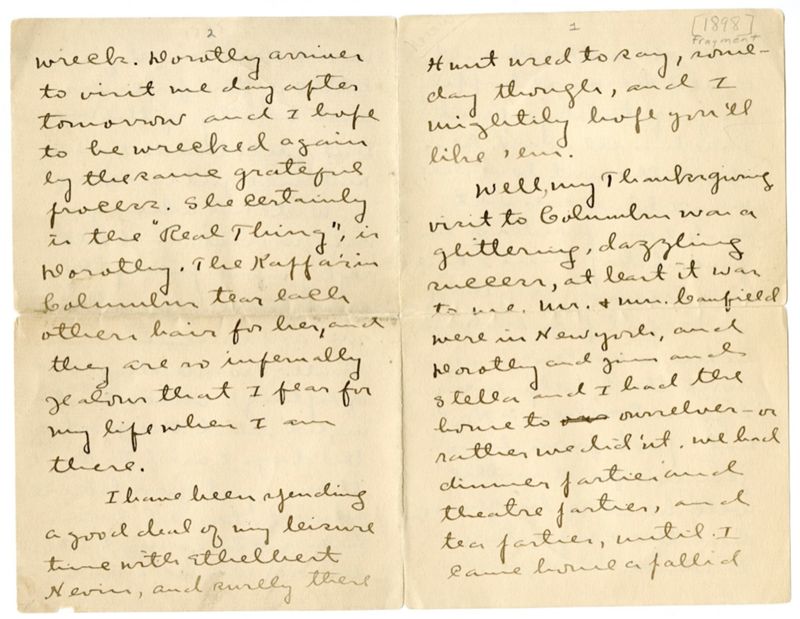 1
[1898]
Fragment
Hunt used to say, some-
day though, and I
mightily hope you'll
like 'em.
Well, my Thanksgiving
visit to Columbus was a
glittering, dazzling
success, at least it was
to me. Mr. & Mrs. Canfield
were in New York, and
Dorothy and Jim and
Stella and I had the
home to our ourselves – or
rather we did'nt. We had
dinner parties and
theatre parties, and
tea parties, until I
came home a pallid
2
wreck. Dorothy arrives
to visit me day after
tomorrow and I hope
to be wrecked again
by the same grateful
process. She certainly
is the "Real Thing", is
Dorothy. The Kaffa's in
Columbus tear each
others hair for her, and
they are so infernally
jealous that I fear for
my life when I am
there.
I have been spending
a good deal of my leisure
time with Ethelbert
Nevin, and surely there